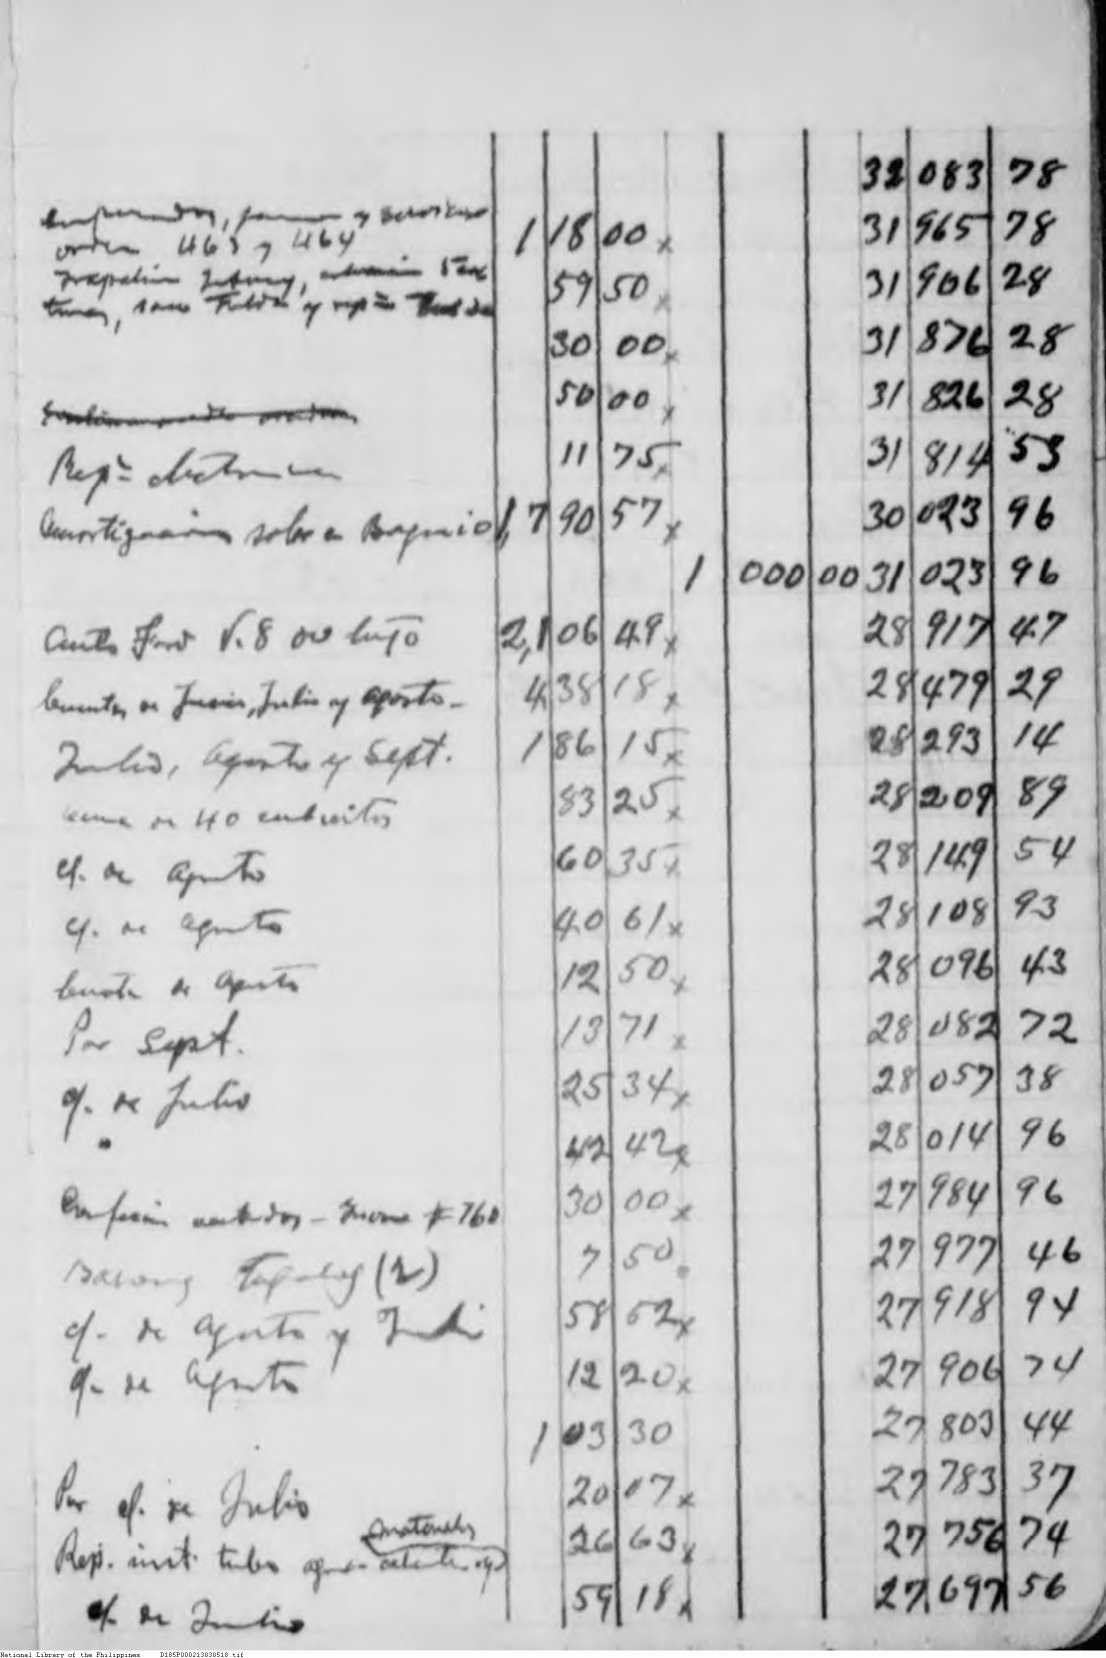 32 083 78
y 1 18 00 x 31 965 78
orden 463 y 464
59 50 x 31 906 28
30 00 x 31 876 28
50 00 x 31 826 28
Repn 11 75 x 31 814 53
Amortización sobre Baguio 1,7 90 57 x 30 023 96
1 000 00 31 023 96
Auto Ford V. 8 de lujo 2,1 06 49 x 28 917 47
Cuentas de Junio, Julio y Agosto - 4 38 18 x 28 479 29
Julio, Agosto y Sept. 1 86 15 x 28 293 14
de 40 cubiertos 83 25 x 28 209 89
cf. de Agosto 60 35 x 28 149 54
cf. de Agosto 40 61 x 28 108 93
Cuenta de Agosto 12 50 x 28 096 43
Por Sept. 13 71 x 28 082 72
cf. de Julio 25 34 x 28 057 38
" 42 42 x 28 014 96
Confección vestidos - # 760 30 00 x 27 984 96
Barong Tagalog (2) 7 50 27 977 46
cf. de Agosto y Julio 58 52 x 27 918 94
cf. de Agosto 12 20 x 27 906 74
1 03 30 27 803 44
Por cf. de Julio 20 07 x 27 783 37
materiales
Rep. inst. tubo agua caliente y 26 63 x 27 756 74
cf. de Julio 59 18 x 27,697 56
National Library of the Philippines D185P000213030518.tif